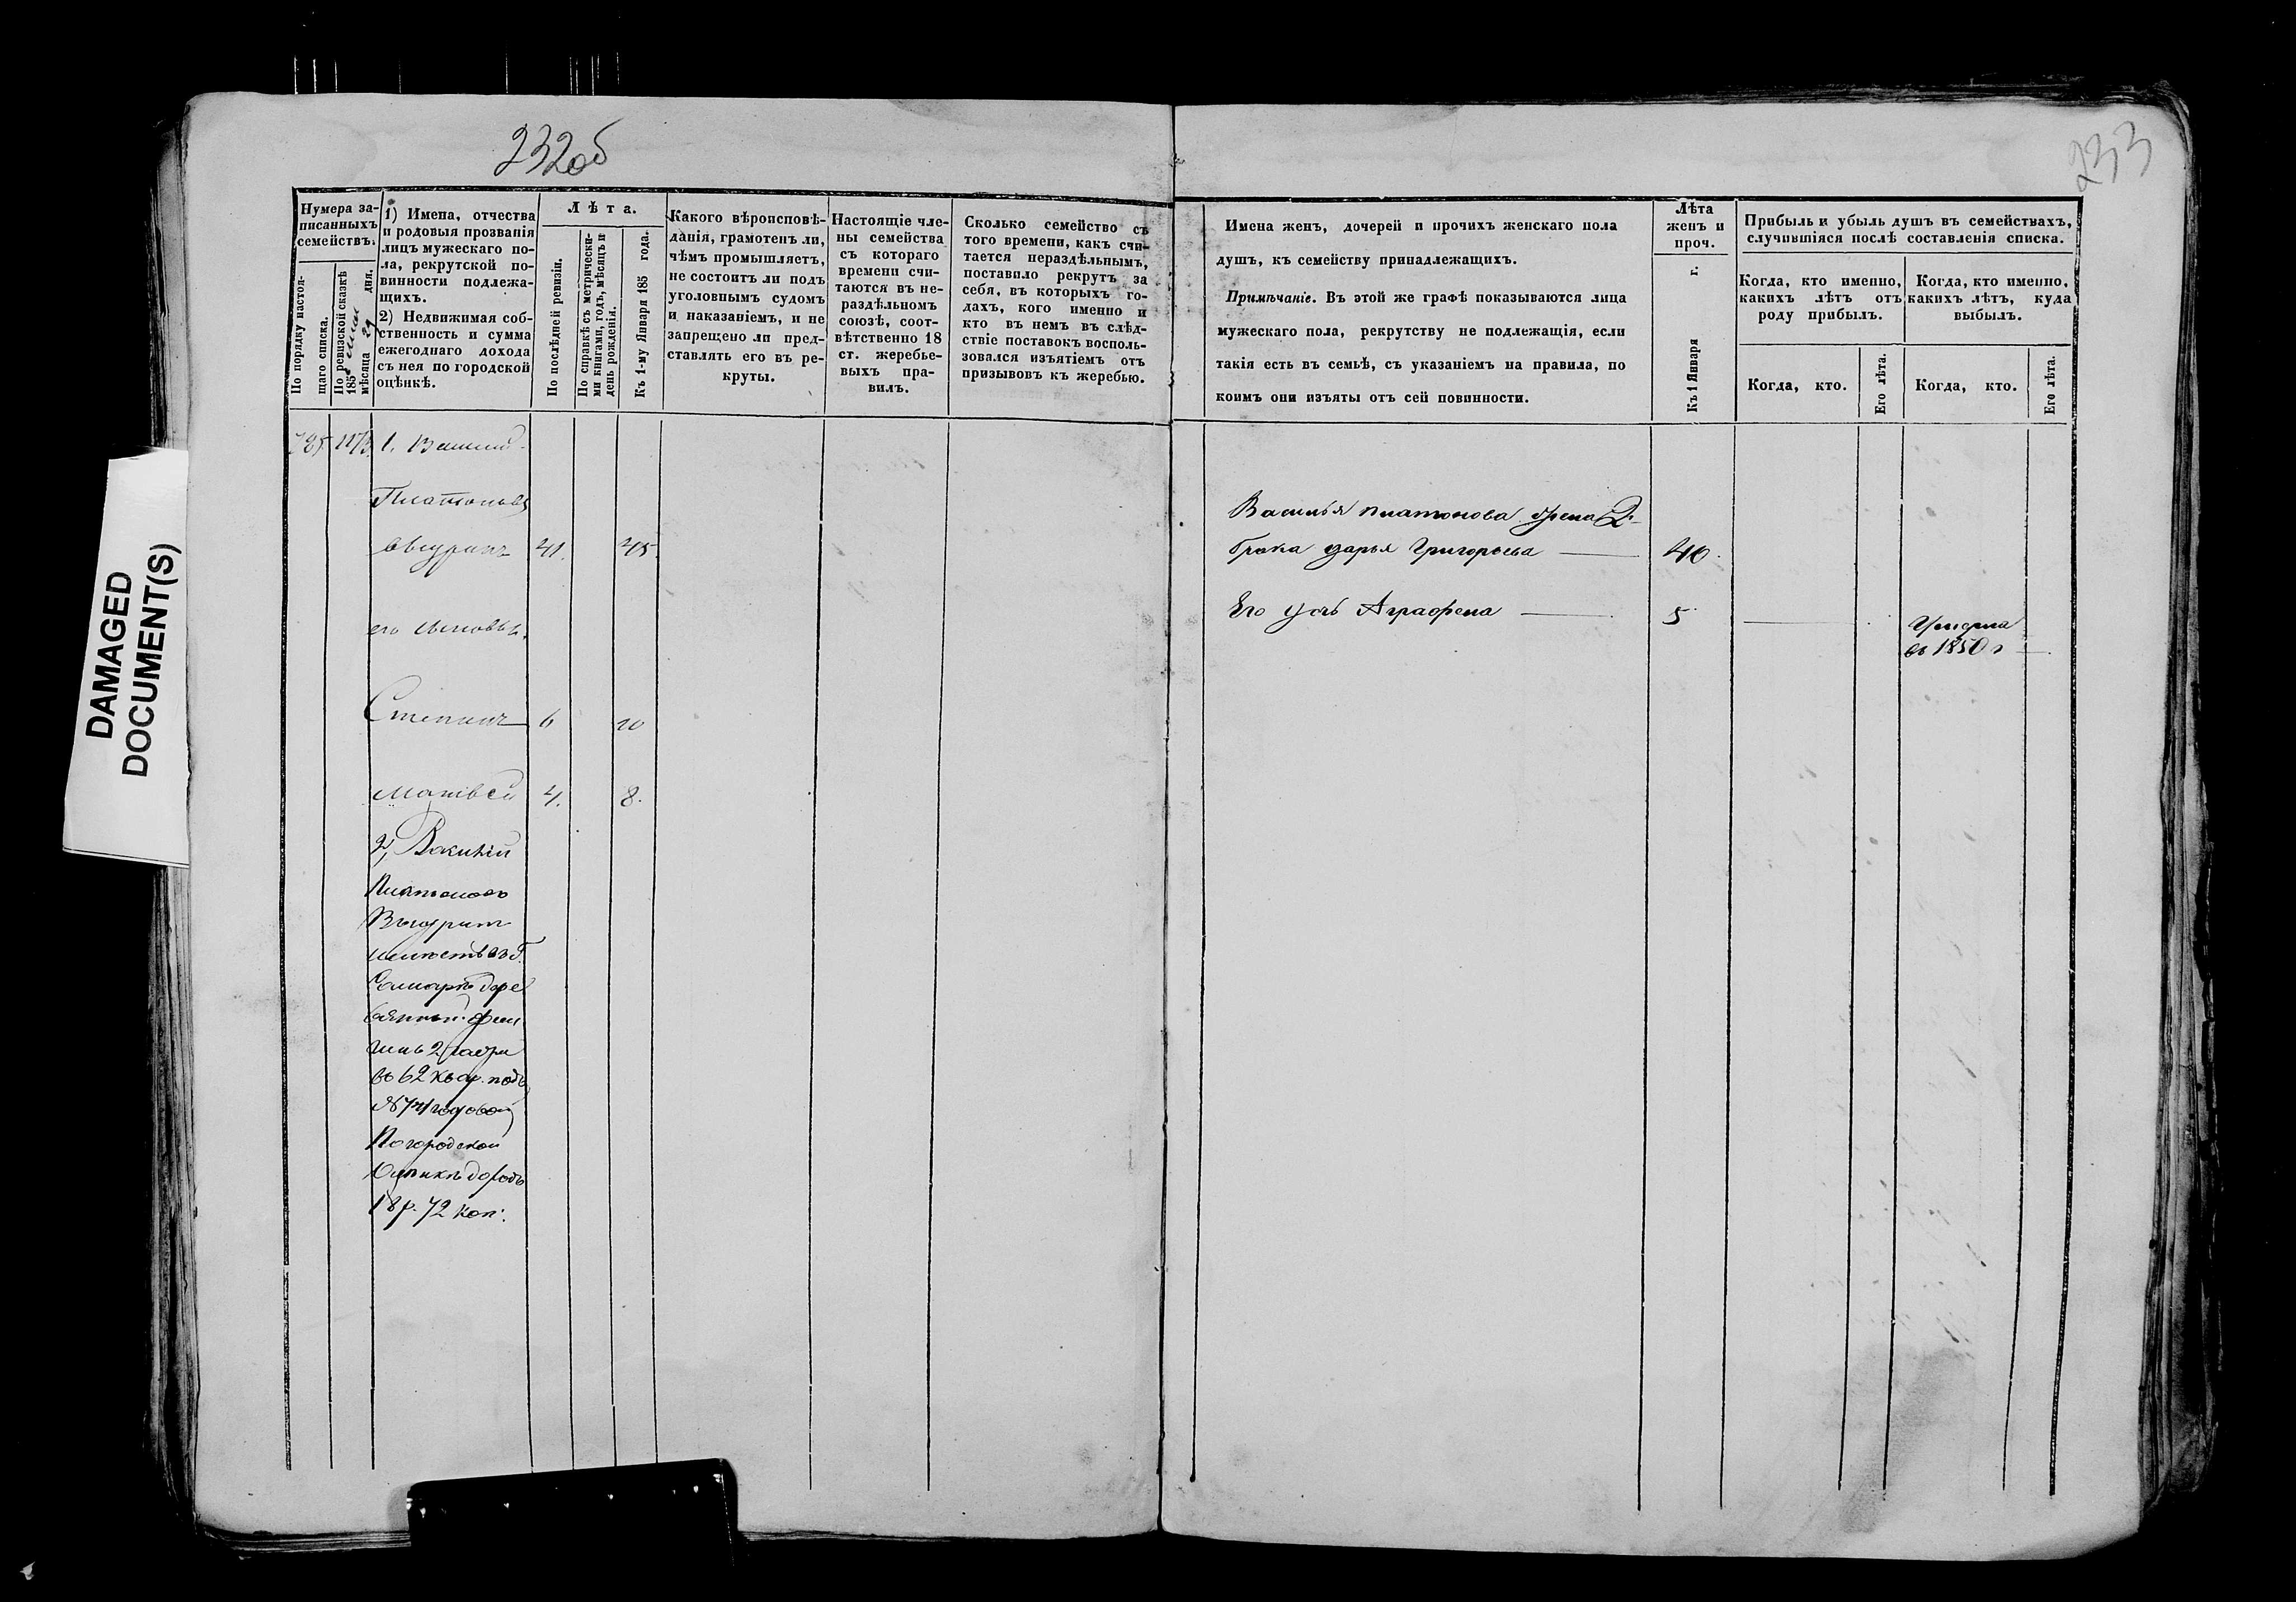 232об
233
DAMAGED
DOCUMENT(S)
Нумера за-
писанныхъ
семействъ.
По порядку настоя-
щаго списка.
По ревизской сказкѣ
185
мѣсяца 29 дня.
1) Имена, отчества
и родовыя прозванія
лицъ мужескаго по-
ла, рекрутской по-
винности подлежа-
щихъ.
2) Недвижимая соб-
ственность и сумма
ежегоднаго дохода
съ нея по городской
оцѣнкѣ.
Лѣта.
По послѣдней ревизіи.
По справкѣ съ метрически-
ми книгами, годъ, мѣсяцъ и
день рожденія.
Къ 1-му Января 185 года.
Какого вѣроисповѣ-
данія, грамотенъ ли,
чѣмъ промышляетъ,
не состоитъ ли подъ
уголовнымъ судомъ
и наказаніемъ, и не
запрещено ли пред-
ставлять его въ ре-
круты.
Настоящіе чле-
ны семейства
съ котораго
времени счи-
таются въ не-
раздѣльномъ
союзѣ, соот-
вѣтственно 18
ст. жеребье-
выхъ пра-
вилъ.
Сколько семейство съ
того времени, какъ счи-
тается нераздѣльнымъ,
поставило рекрутъ за
себя, въ которыхъ го-
дахъ, кого именно и
кто въ немъ въ слѣд-
ствіе поставокъ восполь-
зовался изъятіемъ отъ
призывовъ къ жеребью.
Имена женъ, дочерей и прочихъ женскаго пола
душъ, къ семейству принадлежащихъ.
Примѣчаніе. Въ этой же графѣ показываются лица
мужескаго пола, рекрутству не подлежащія, если
такія есть въ семьѣ, съ указаніемъ на правила, по
коимъ они изъяты отъ сей повинности.
Лѣта
женъ и
проч.
Къ 1 Января г.
Прибыль и убыль душъ въ семействахъ,
случившіяся послѣ составленія списка.
Когда, кто именно,
какихъ лѣтъ отъ
роду прибылъ.
Когда, кто именно,
какихъ лѣтъ, куда
выбылъ.
Когда, кто.
Его лѣта.
Когда, кто.
Его лѣта.
785 1173. 1.
Платоновъ
41. 45.
его сыновья.
Степанъ 6 10
Матвей 4. 8.
2,
Платоновъ
имѣетъ въ г.
Самарѣ дере
вянный
2 части
въ 62 квар. подъ
№ 741 годовой
По городской
Оцѣнкѣ доходъ
18 р. 72 коп.
Василья Платонова жена 2-
брака Дарья Григорьева 40.
Его дочь Аграфена 5
Умерла
въ 1850 г